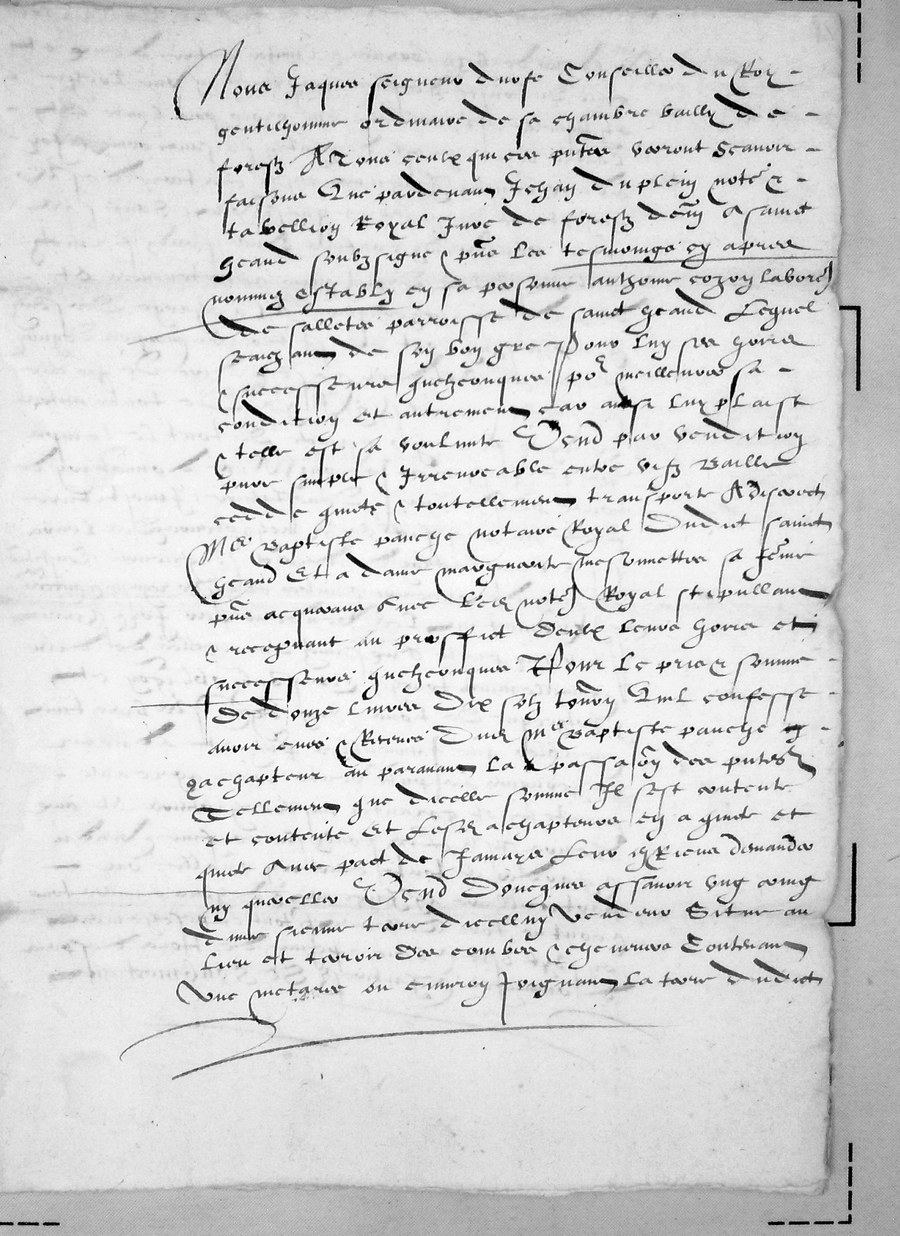 Nous Jaques seigneur durfe Conseiller du Roy
gentilhomme ordinaire de sa chambre bailly de
forestz A tous ceulx qui ces pntes verront Scavoir
faisons Que pardevant Jehan du plein note r
tabellion Royal Jure de forestz demt a sainct
heand soubzsigne & pns les tesmoings cy apres
nommez establiy en sa personne anthoine cozon labor
de salletes parroisse de sainct heand Lequel
scaichant de son bon gre Pour luy ses hoirs
& successeurs quelzconques por meilleurer sa
condition et autrement car ainsi luy plaist
& telle est sa voulunte Vend par vendition
pure simple & Irrevocable entre vifz Baille
cedde quicte & toutellement transporte A discrect
Me Baptiste panche notaire Royal dudict sainct
heand Et a dame marguerite mesonnettes sa feme
pns acquerans Avec Led note Royal stipullant
& recepvant au proffict deulx leurs hoirs et
successeurs quelzconques Pour le pris & somme
de douze livres dix solz tornoy Quil confesse
avoir eues & Receues dud Me Baptiste panche
achapteur au paravant la passaon des pntes
Tellement que dicelle somme Il sest contente
et contente Et lesd achapteurs en a quicte et
quicte Avec pact de Jamais leur en Riens demander
ny quereller Vend doncques assavoir ung coing
dune sienne terre dicelluy Vendeur Situee au
lieu et terroir des combes & cheneves Contenant
une meteree ou environ Joignant la terre dudict